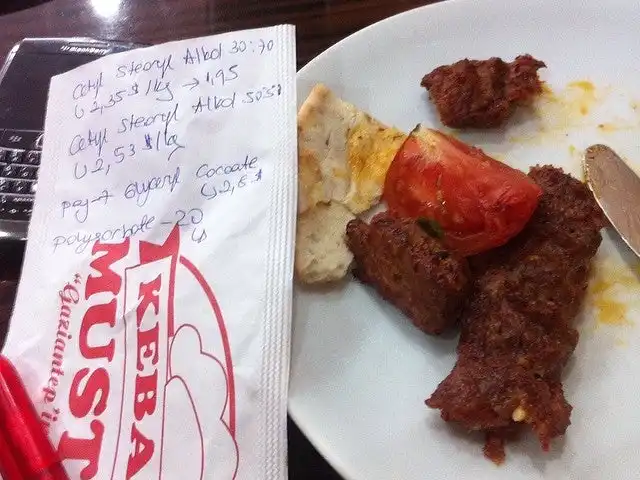 BlackBerry
Cetyl Stearyl Alkol 30:70
↳ 2,35 $/kg → 1,95
Cetyl Stearyl Alkol 50:50
↳ 2,53 $/kg
peg-7 Glyceryl Cocoate
↳ 2,6 $
polysorbate-20
↳
KEBA
MUST
"Gaziantep'i